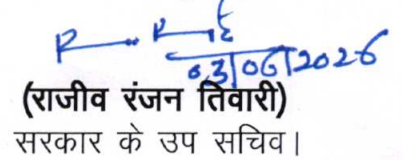 03/06/2026
(राजीव रंजन तिवारी)
सरकार के उप सचिव।